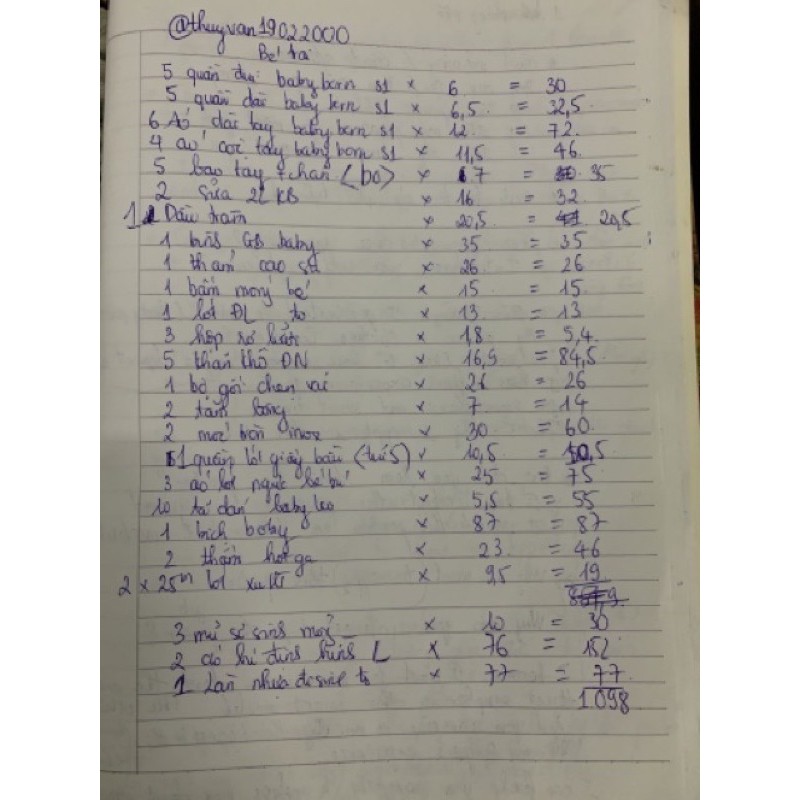 @thuyvan19022000
Bé trai
5 quần đùi babyborn s1 × 6 = 30
5 quần dài babyborn s1 × 6,5 = 32,5
6 Áo dài tay babyborn s1 × 12 = 72
4 áo cộc tay babyborn s1 × 11,5 = 46
5 bao tay + chân (bo) × 7 = 35
2 sữa 2L KB × 16 = 32
1 Dầu tràm × 20,5 = 20,5
1 bình GB baby × 35 = 35
1 thảm cao su × 26 = 26
1 bấm móng bé × 15 = 15
1 lót ĐL to × 13 = 13
3 hộp rơ lưỡi × 1,8 = 5,4
5 khăn thô ĐN × 16,9 = 84,5
1 bộ gối chặn vải × 26 = 26
2 tăm bông × 7 = 14
2 móc tròn inox × 30 = 60
1 quần lót giấy bầu (túi 5) × 10,5 = 10,5
3 áo lót ngực bé bú × 25 = 75
10 tã dán baby leo × 5,5 = 55
1 bịch boby × 87 = 87
2 thảm hơi ga × 23 = 46
2 × 25m lót xu KT × 9,5 = 19
3 mũ sơ sinh mỏng × 10 = 30
2 áo hình L × 76 = 152
1 nhựa to × 77 = 77
1098